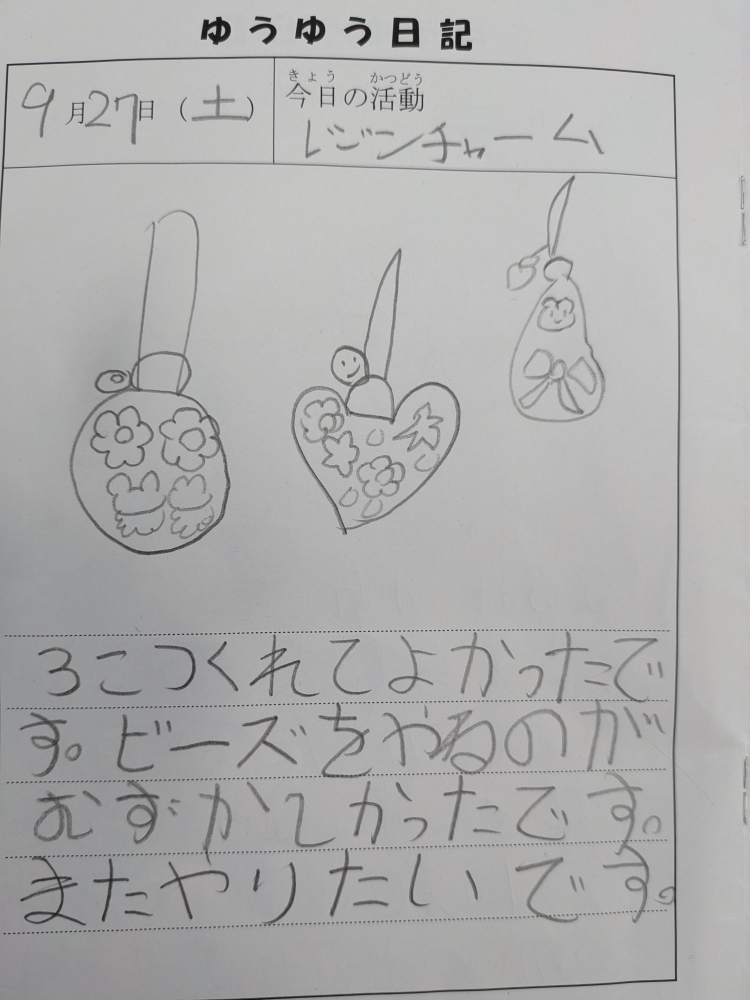 ゆうゆう日記
9月27日（土）
きょう かつどう
今日の活動
レジンチャーム
3こつくれてよかったで
す。ビーズをやるのが
むずかしかったです。
またやりたいです。